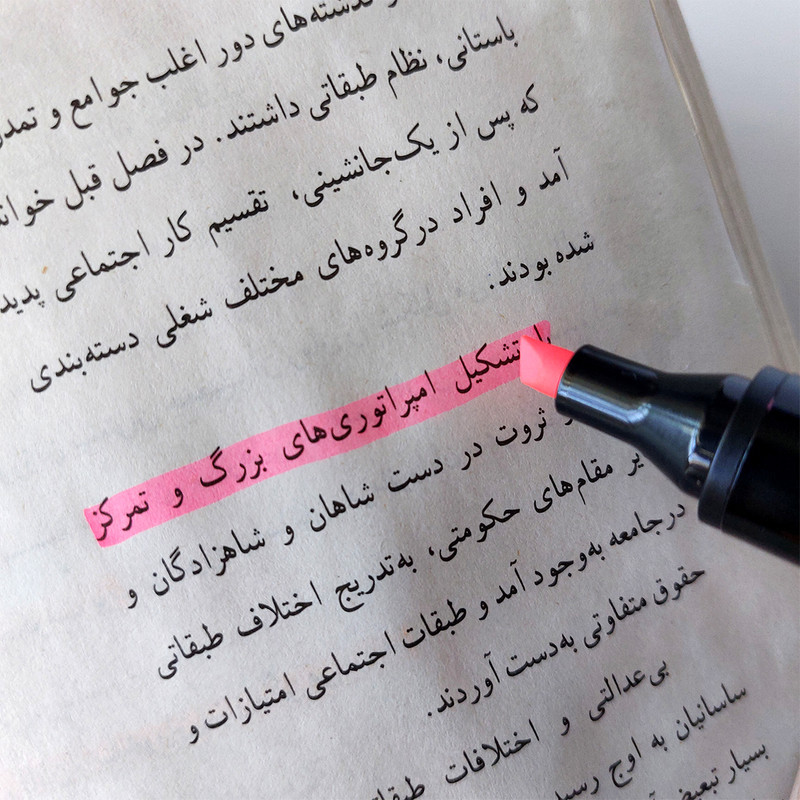 گذشته‌های دور اغلب جوامع و
باستانی، نظام طبقاتی داشتند. در فصل قبل
که پس از یک‌جانشینی، تقسیم کار اجتماعی پدید
آمد و افراد در گروه‌های مختلف شغلی دسته‌بندی
شده بودند.
با تشکیل امپراتوری‌های بزرگ و تمرکز
ثروت در دست شاهان و شاهزادگان و
مقام‌های حکومتی، به‌تدریج اختلاف طبقاتی
در جامعه به‌وجود آمد و طبقات اجتماعی امتیازات و
حقوق متفاوتی به‌دست آوردند.
بی‌عدالتی و اختلافات
ساسانیان به اوج رسید
بسیار تبعیض